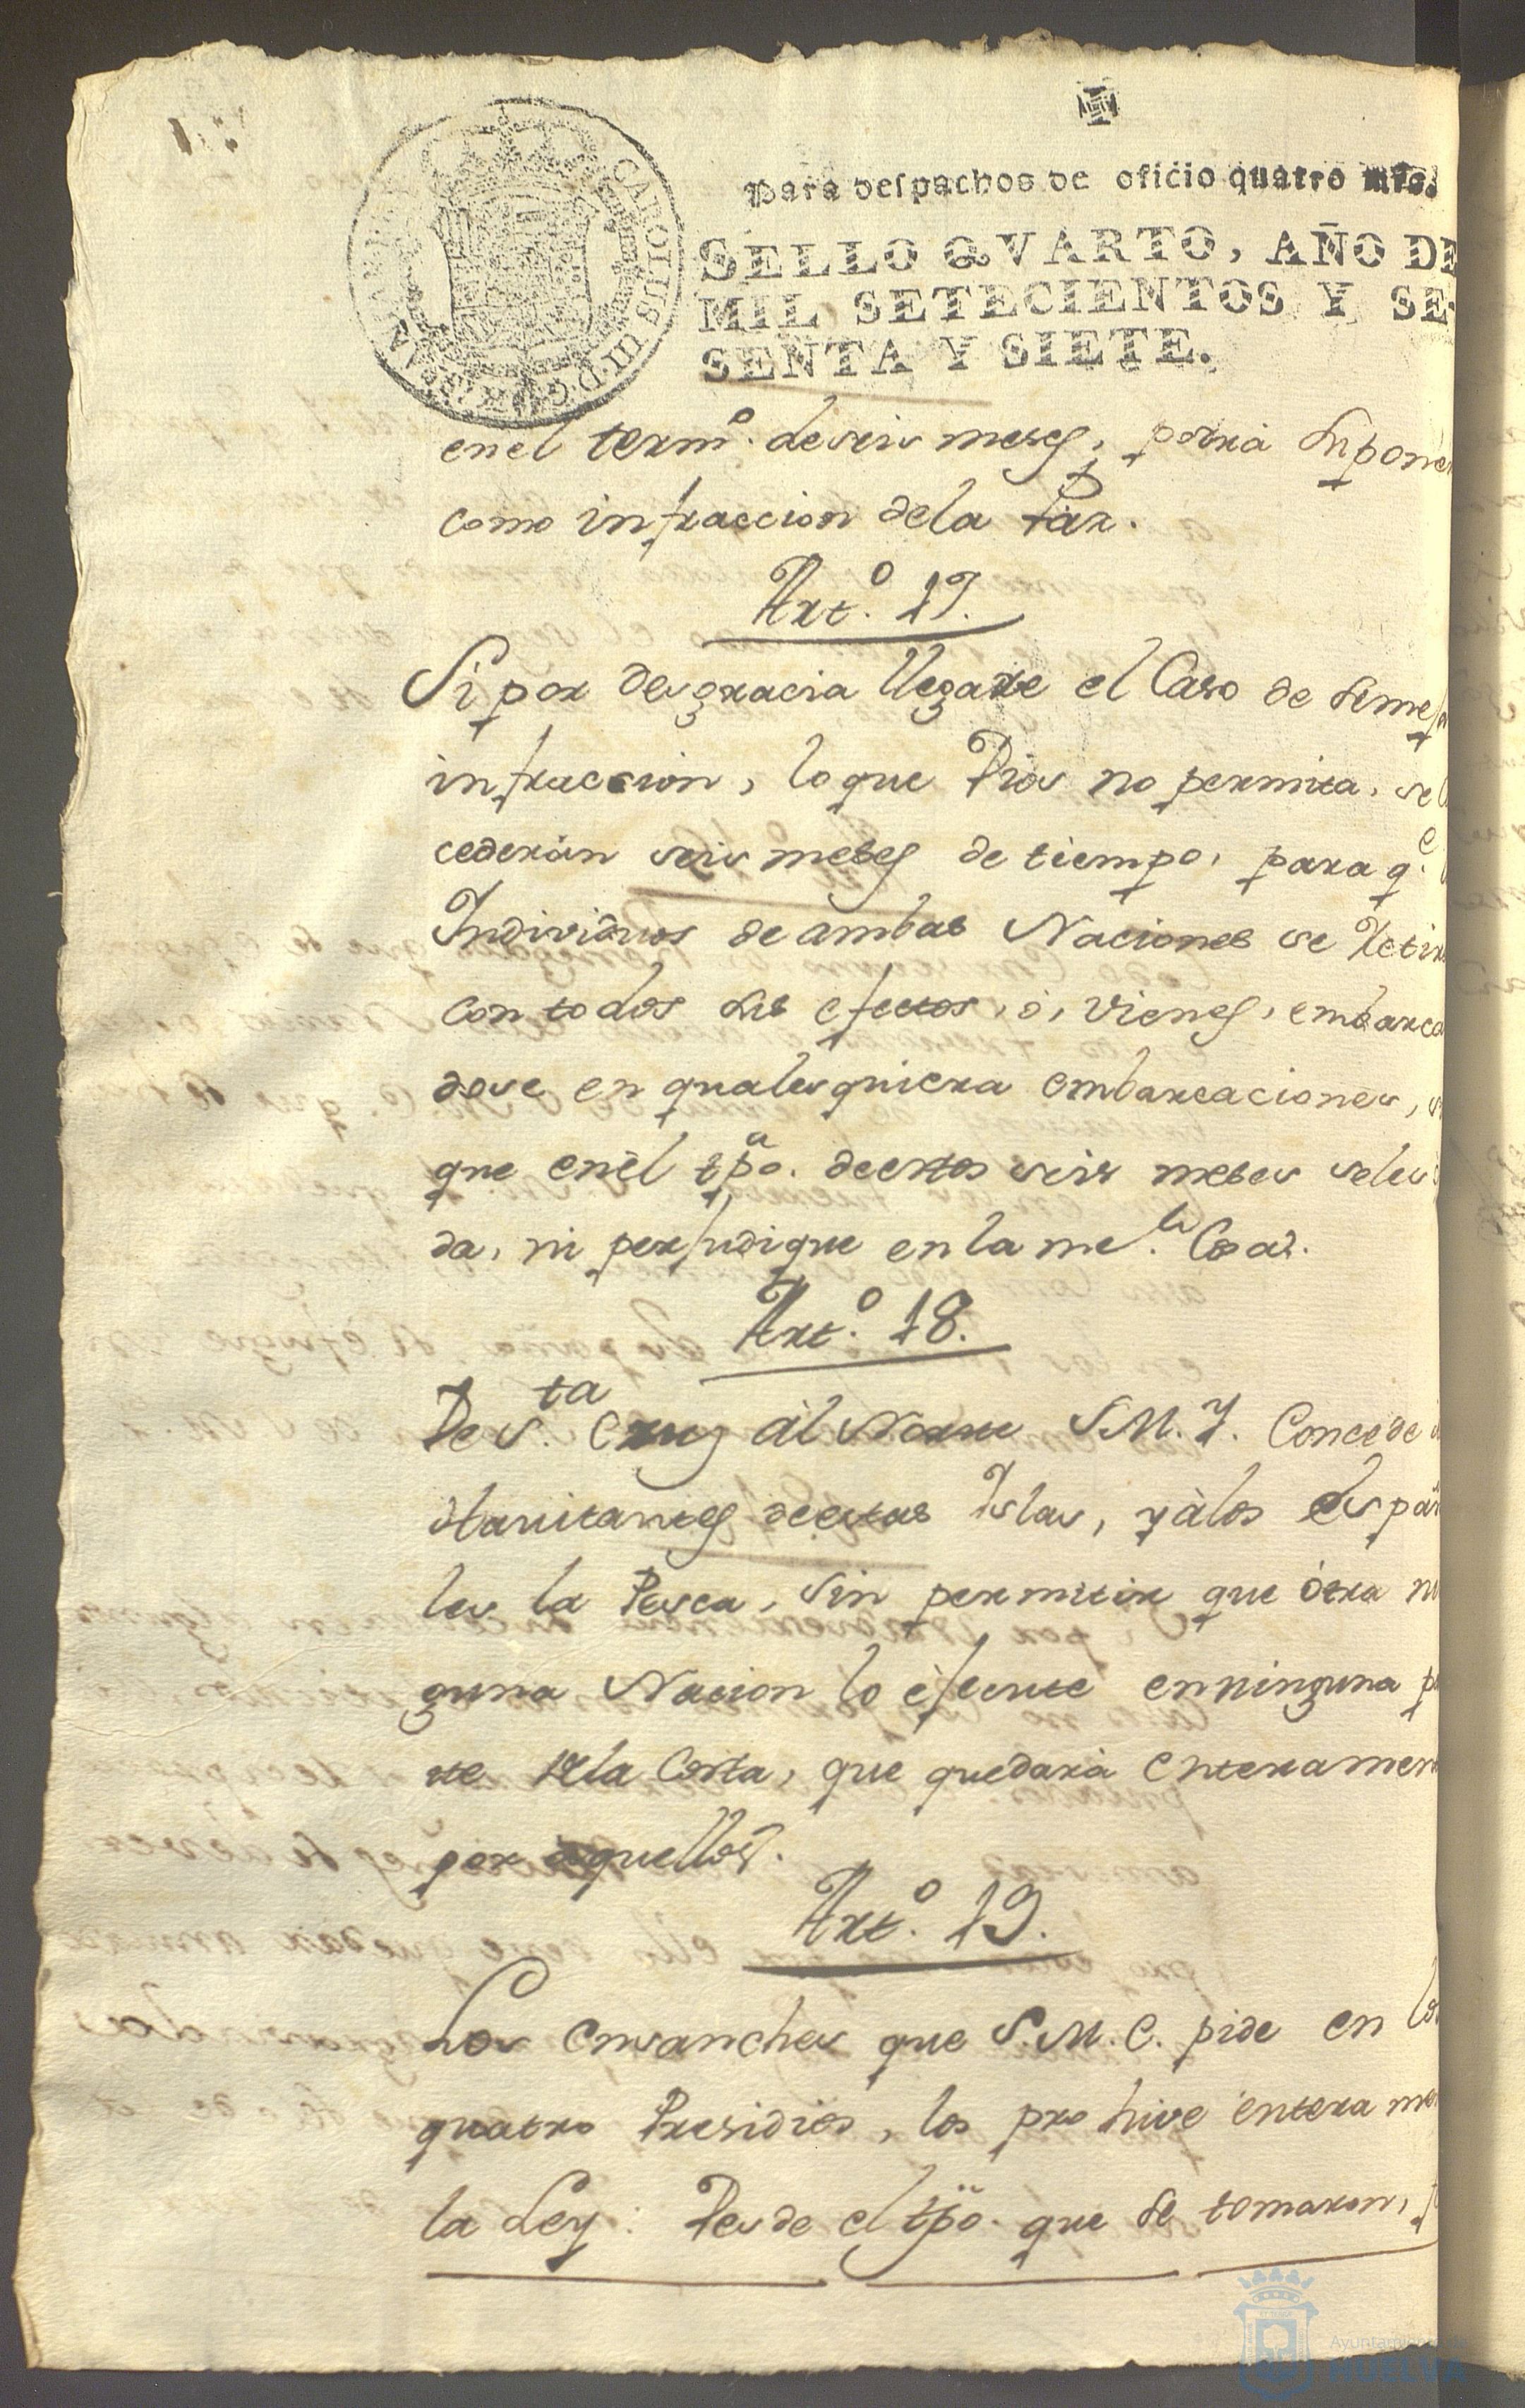 Para despachos de oficio quatro mrs.
SELLO QVARTO, AÑO DE
MIL SETECIENTOS Y SE-
SENTA Y SIETE.
CAROLUS III D.G.
en el termº. de seis meses, podrá supone
como infraccion de la Paz.
Artº. 17.
Si por desgracia llegare el Caso de semej
infraccion, lo que Dios no permita, se
cederán seis meses de tiempo, para qe.
Individuos de ambas Naciones se Retir
con todos sus efectos, ó, vienes, embarca
dose en qualesquiera embarcaciones,
que en èl tpo. de estos seis meses seles
da, ni perjudique en la me.ʳ Cosa.
Artº. 18.
De Sta. Cruz al Norte S.M.Y. Concede
Havitantes de estas Islas, y à los Españ
les la Pesca, sin permitir que ótra ni
guna Nacion lo èjecute en ninguna p
te de la Costa, que quedará enteramen
por aquellos.
Artº. 19.
Los ensanches que S.M.C. pide en lo
quatro Presidios, los prohive entera me
la Ley: Desde el tpo. que se tomaron,
Ayuntamiento de
HUELVA